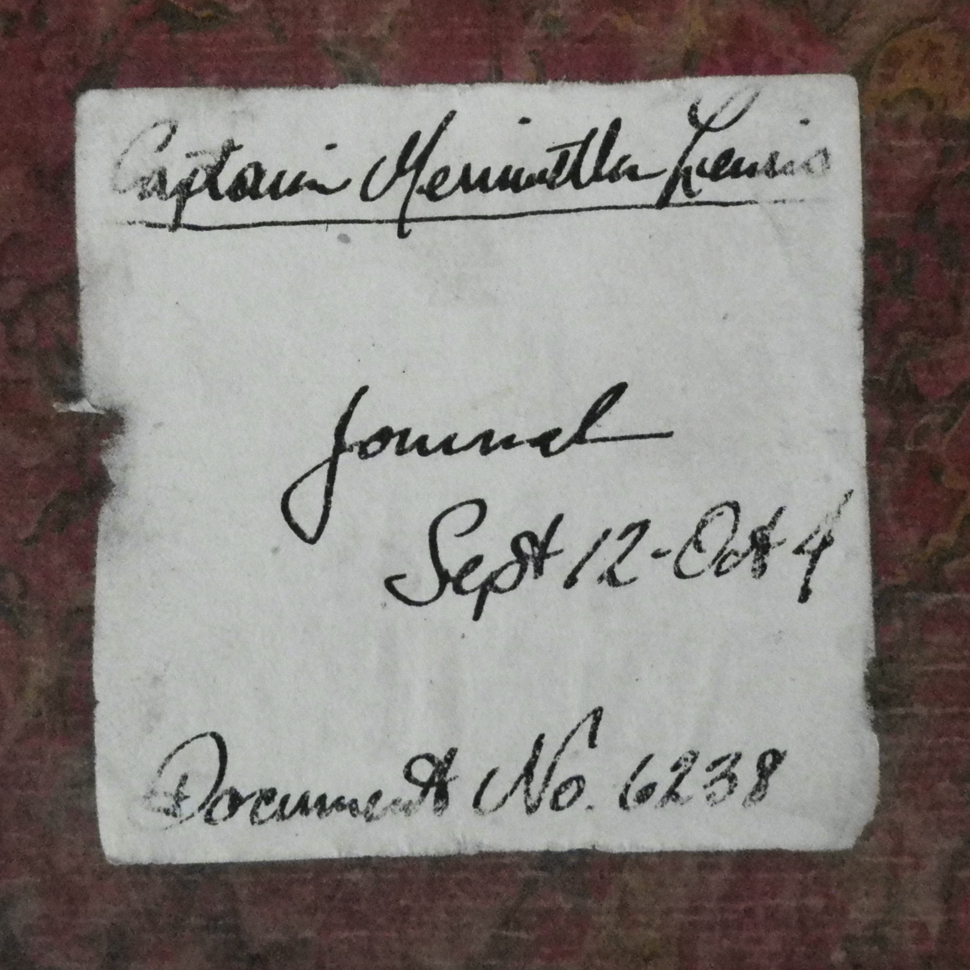 Captain Meriwether Lewis
Journal
Sept 12-Oct 4
Document No. 6238